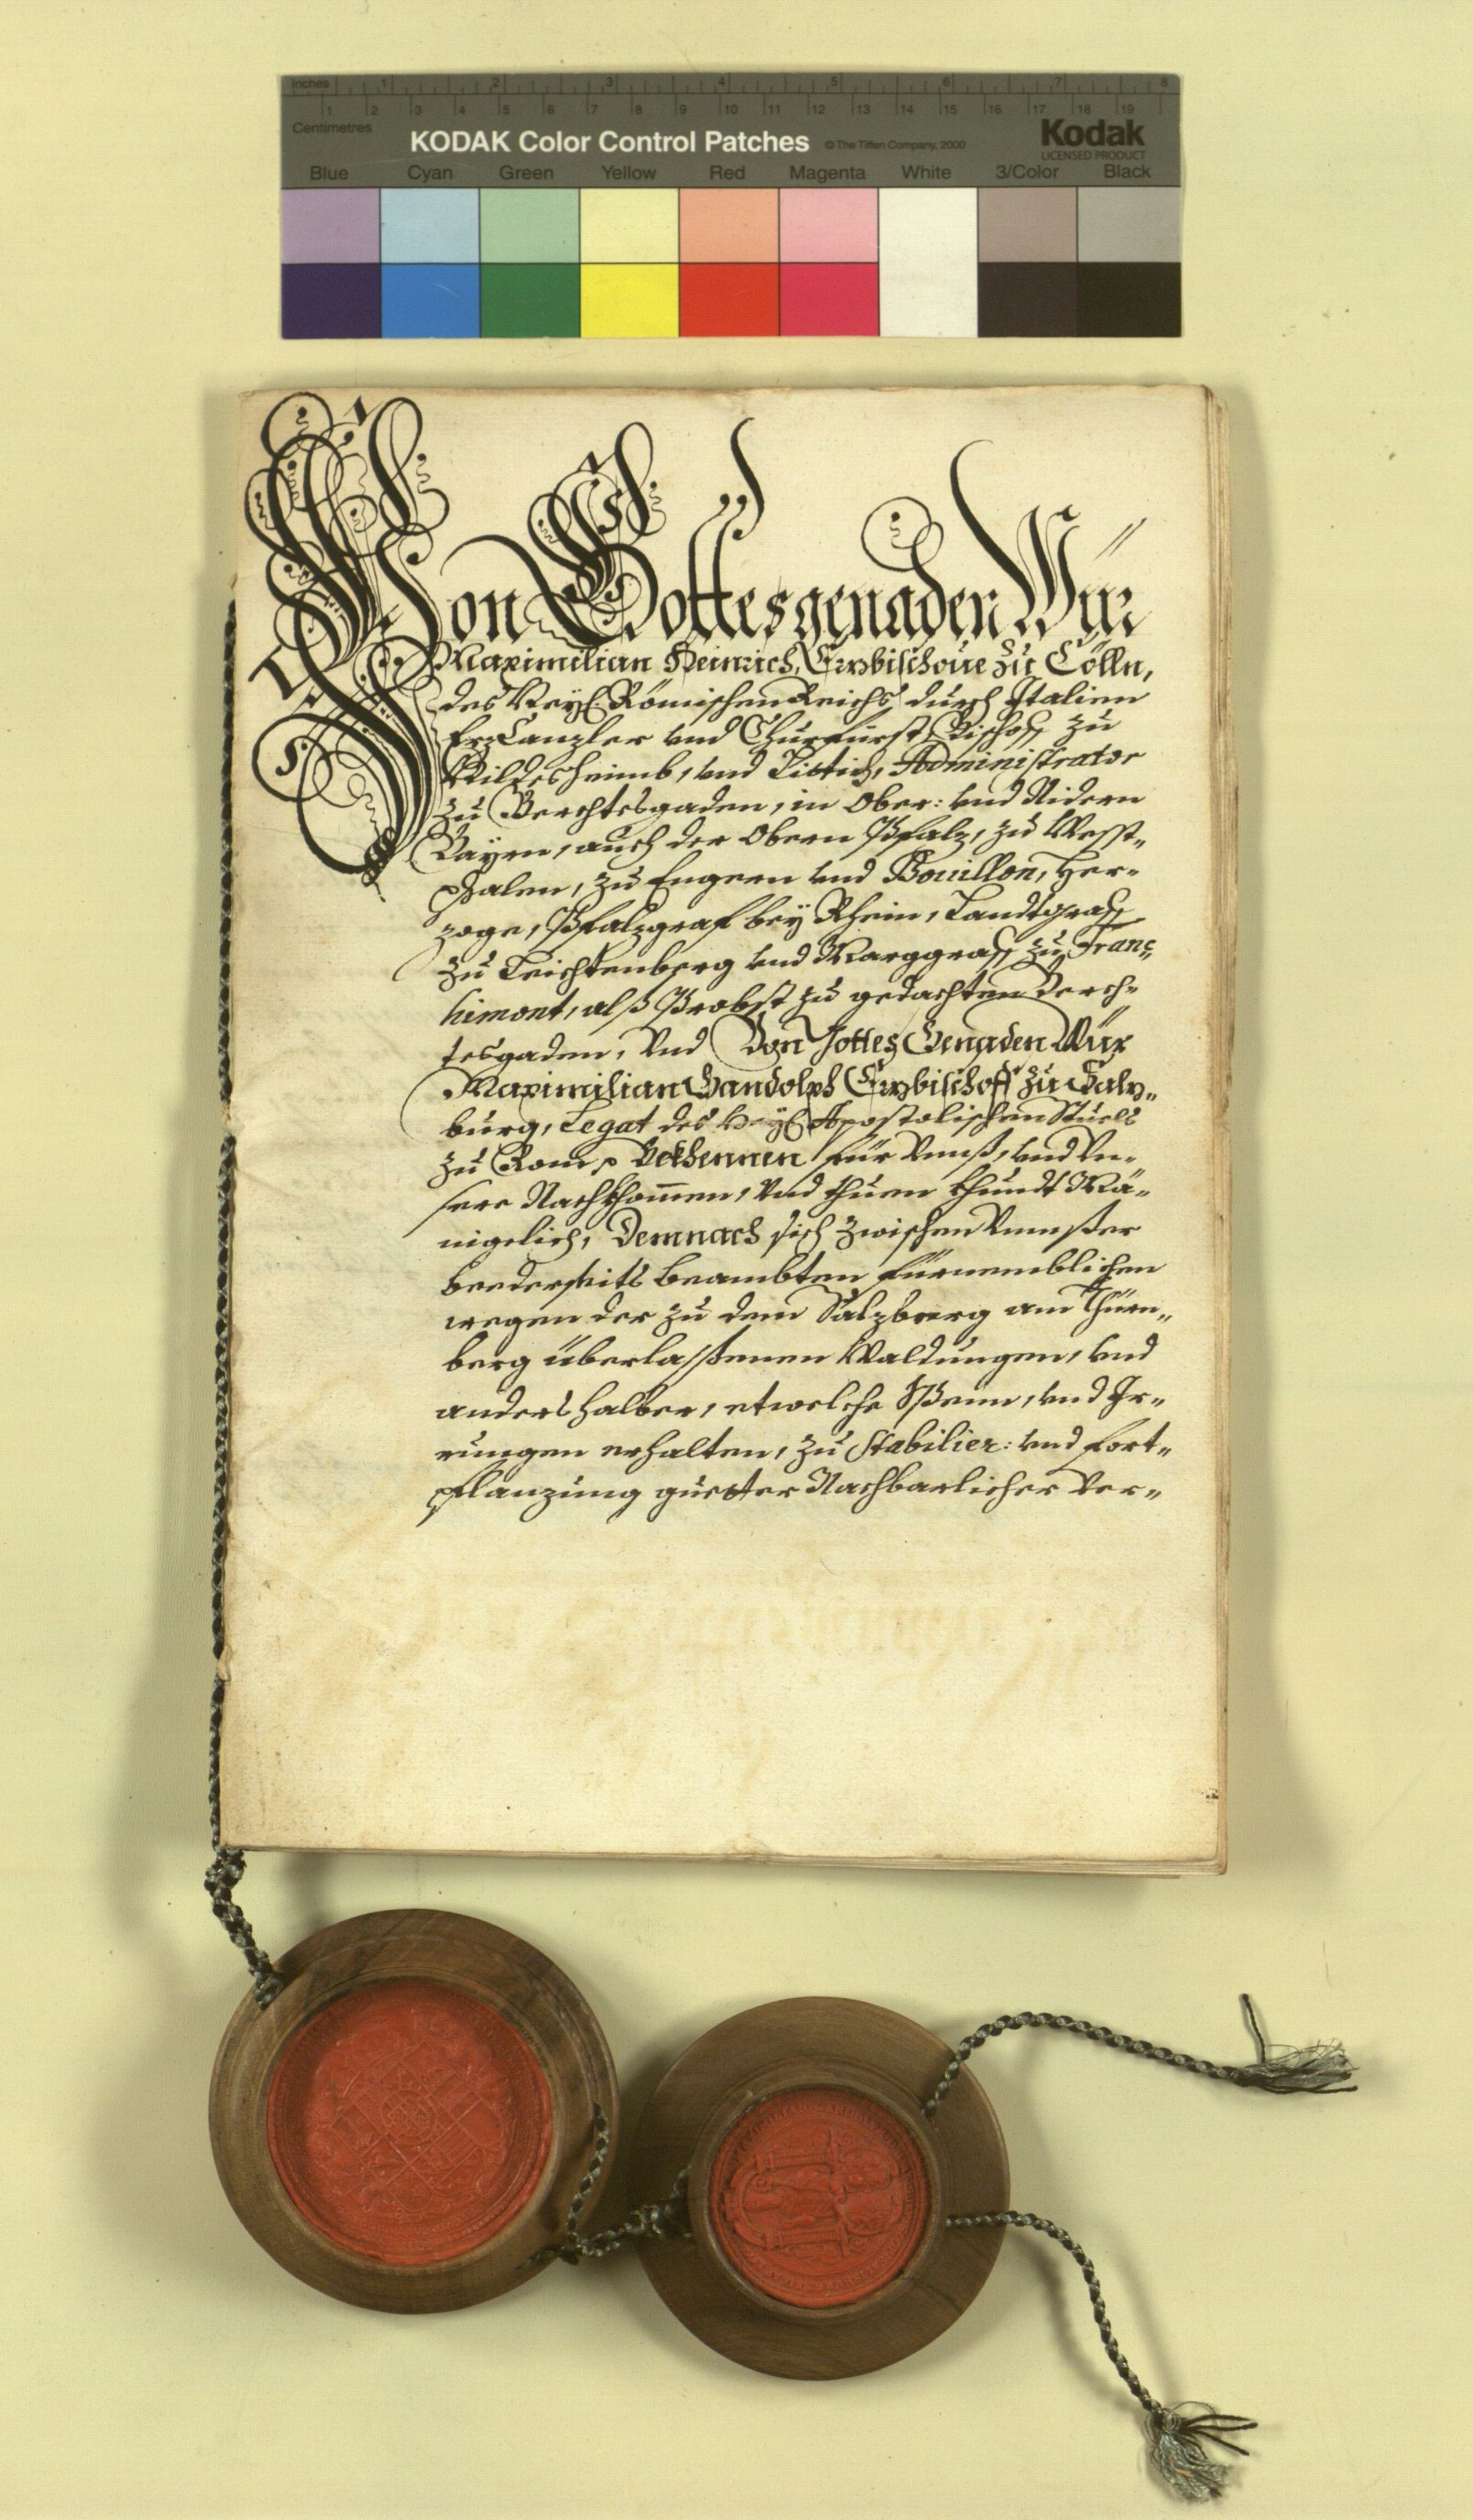 Inches 1 2 3 4 5 6 7 8
1 2 3 4 5 6 7 8 9 10 11 12 13 14 15 16 17 18 19
Centimetres
KODAK Color Control Patches © The Tiffen Company, 2000 Kodak
LICENSED PRODUCT
Blue Cyan Green Yellow Red Magenta White 3/Color Black
Von Gottes genaden Wür
Maximilian Heinrich, Erzbischoue zu Cölln,
des Heyl. Römischen Reichs durch Italien
ErzCanzler vnd Churfürst, Bischoff zu
Hildesheimb, vnd Littich, Administrator
zu Berchtesgaden, in Ober: vnd Nidern
Bayrn, auch der Obern Pfalz, zu Wesst„
phalen, zu Engern vnd Bouillon, Her„
zoge, Pfalzgraf bey Rhein, Landtgraff
zu Leichtenberg vnd Marggraff zu Franc„
himont, alß Probst zu gedachten Berch„
tesgaden, Vnd Von Gottes Genaden Wür
Maximilian Gandolph Erzbischoff zu Salz„
burg, Legat des Heyl. Apostolischen Stuels
zu Rom p Bekhennen für Vnnß, vnd Vn„
sere Nachkhom̄en, Vnd thuen khundt Mä„
nigelich, Demnach sich zwischen Vnnsßer
beederseits beambten fürnemblichen
wegen der zu dem Salzberg am Thürn„
berg überlassßenen Waldungen, vnd
anders halber, etwelche Spenn, vnd Ir„
rungen erhalten, zu Stabilier: vnd fort„
pflanzung guetter Nachbarlicher Ver„